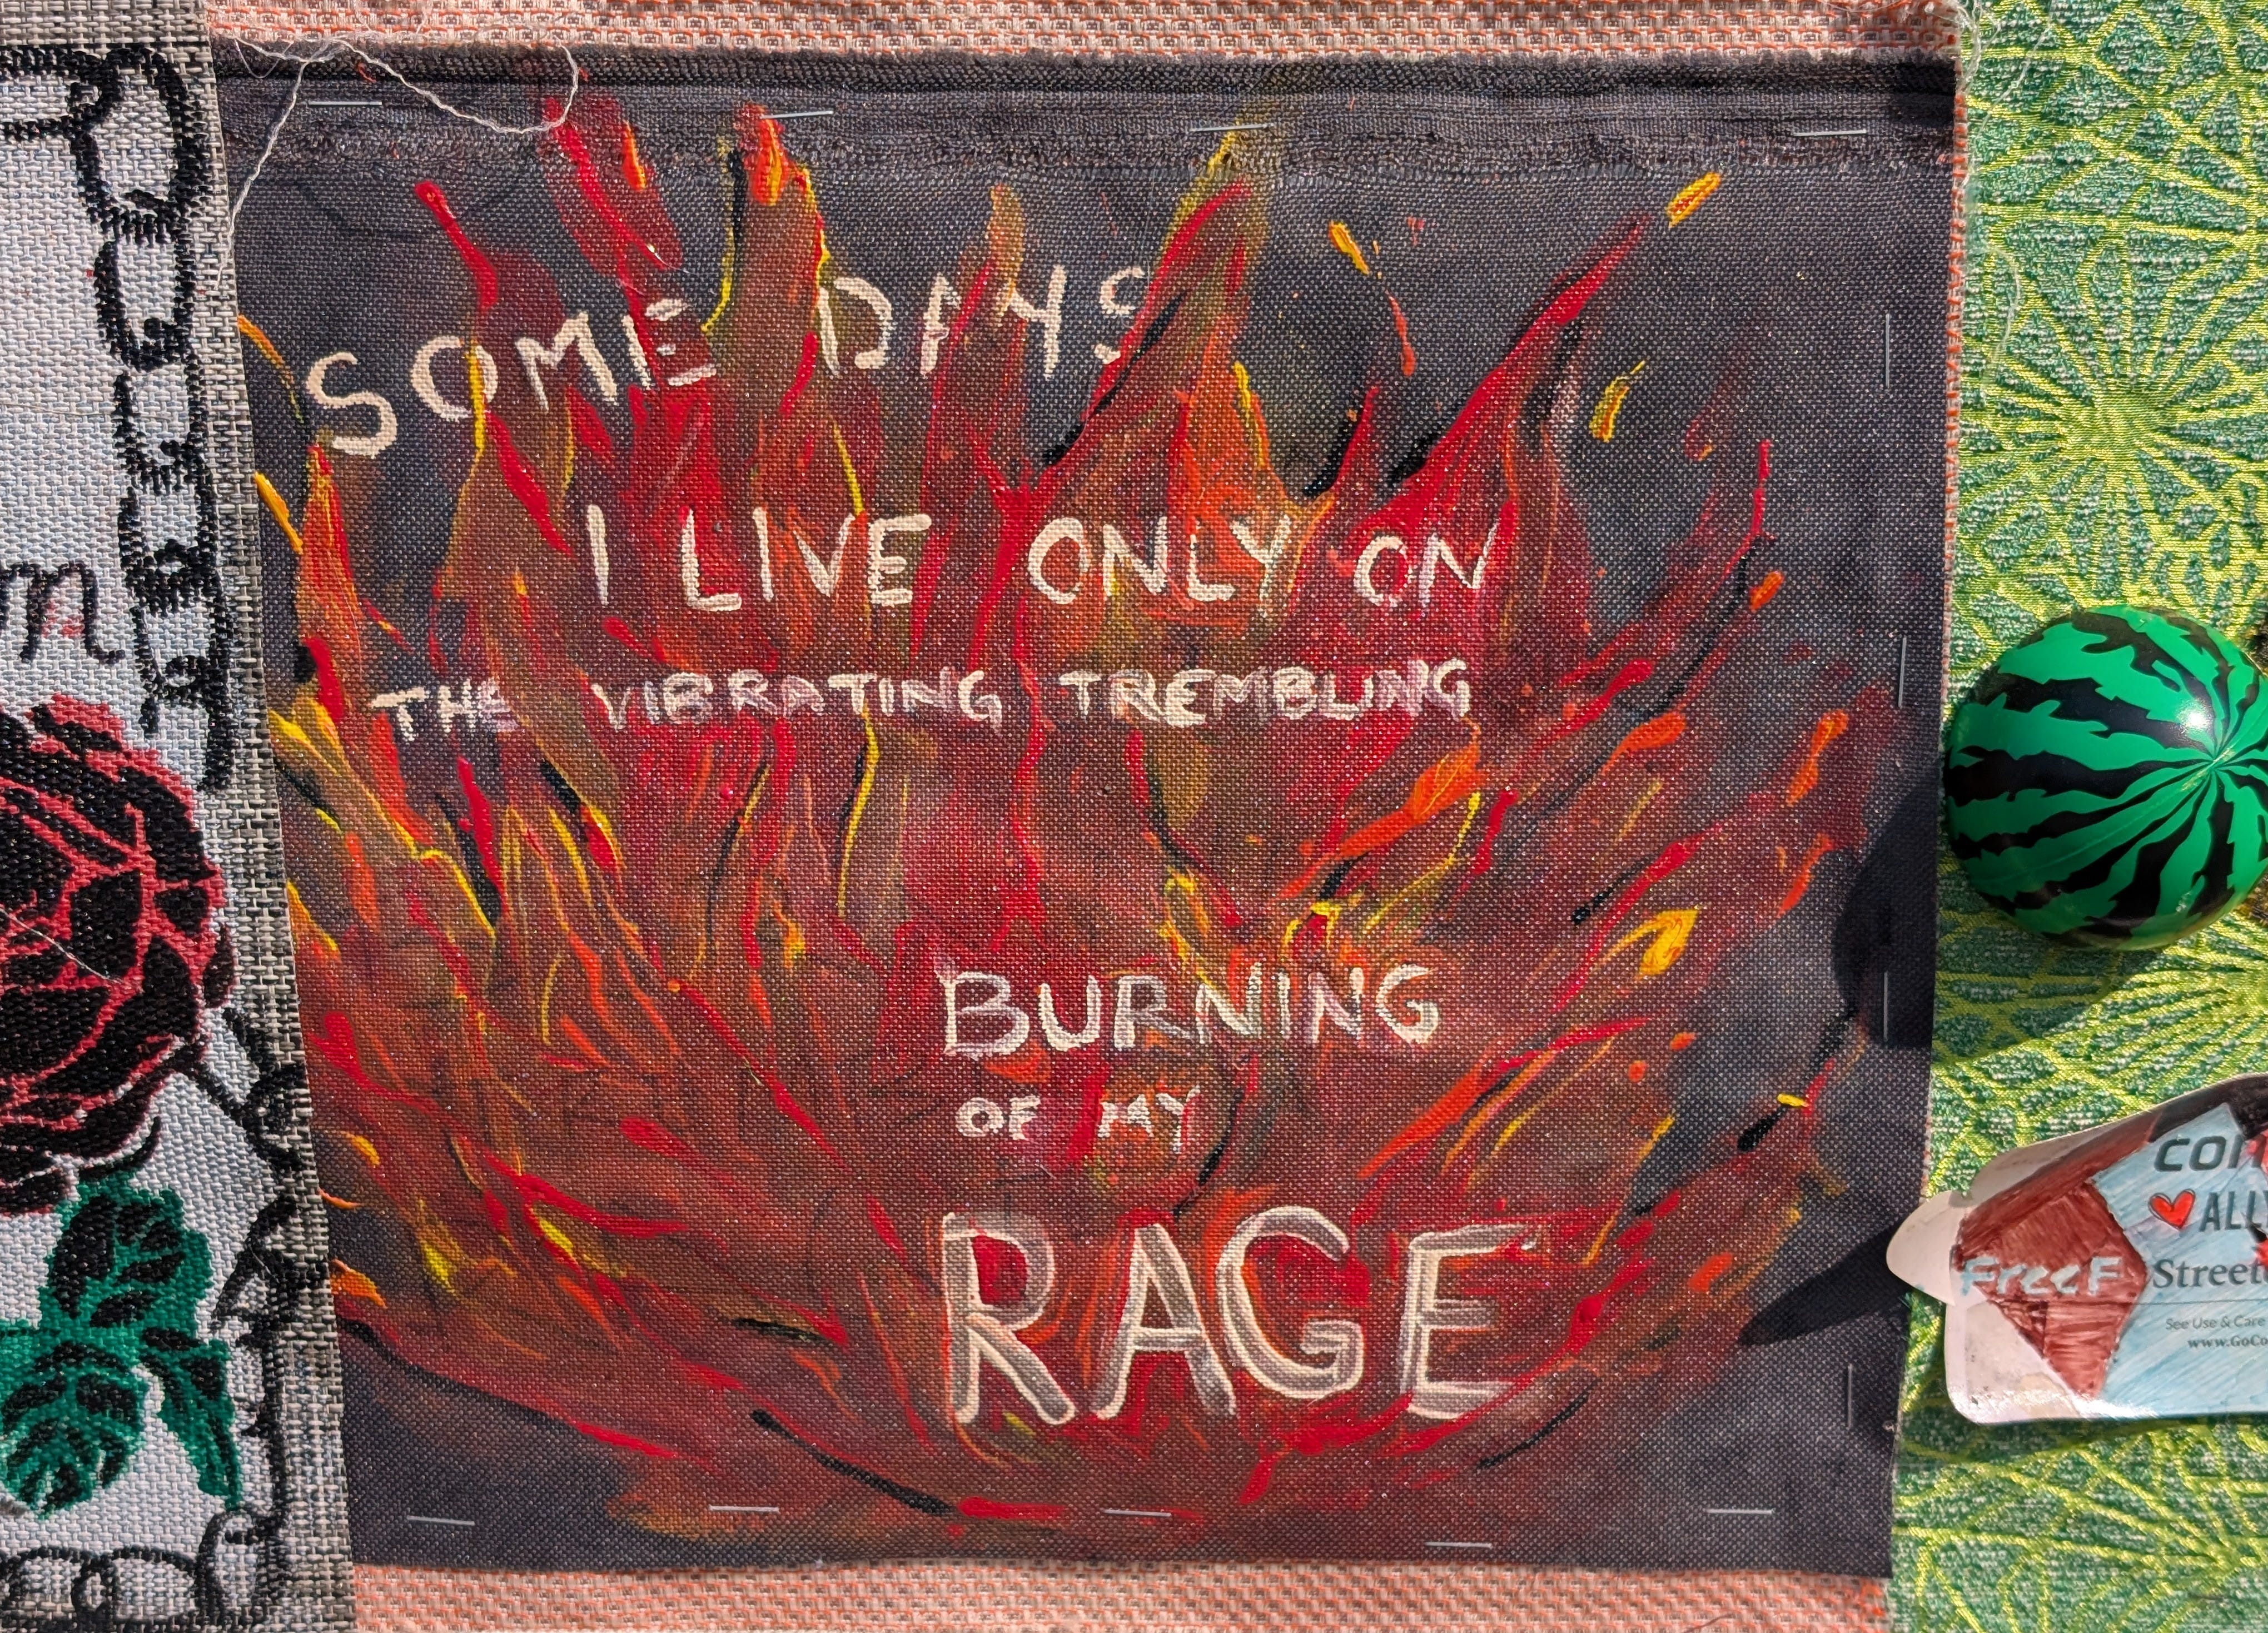 SOME DAYS
I LIVE ONLY ON
THE VIBRATING TREMBLING
BURNING
OF MY
RAGE
m
CON
ALL
Free F
Street
See Use & Care
www.GoCo